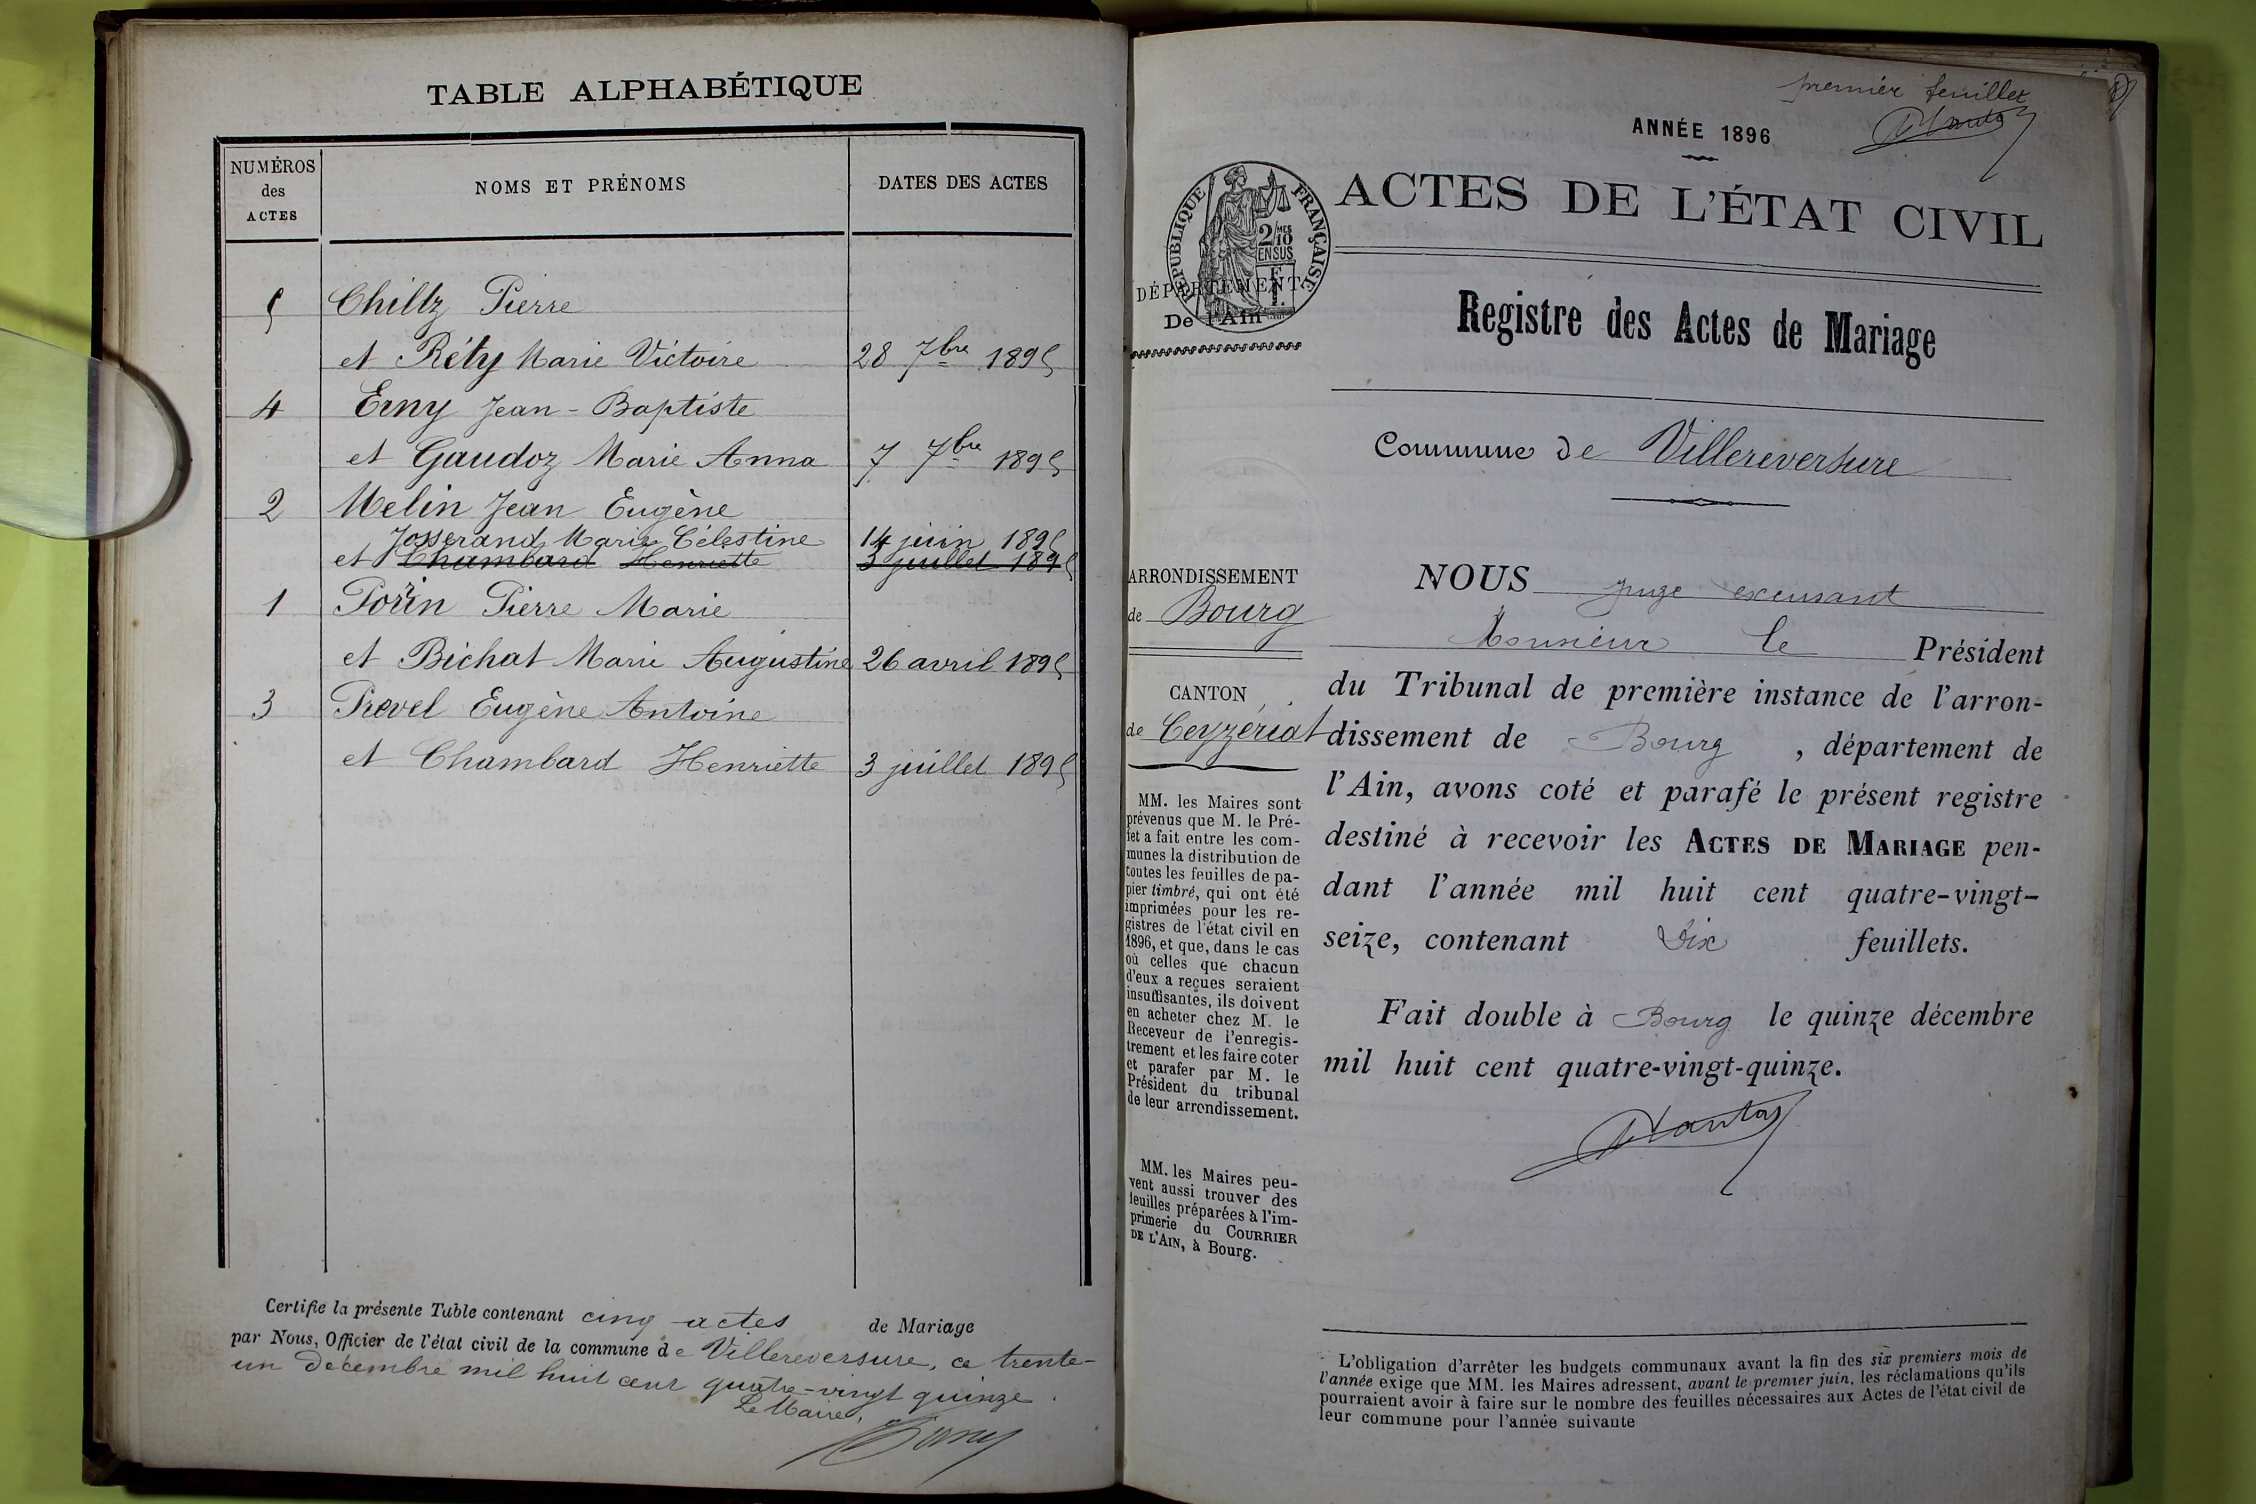 TABLE ALPHABÉTIQUE
NUMÉROS des ACTES
NOMS ET PRÉNOMS
DATES DES ACTES
5 Chiltz Pierre
et Réty Marie Victoire 28 7bre 1895
4 Erny Jean-Baptiste
et Gaudoz Marie Anna 7 7bre 1895
2 Melin Jean Eugène
Josserand Marie Célestine 14 juin 1895
et Chambard Henriette 3 juillet 1895
1 Porin Pierre Marie
et Bichat Marie Augustine 26 avril 1895
3 Prevel Eugène Antoine
et Chambard Henriette 3 juillet 1895
Certifie la présente Table contenant cinq actes de Mariage
par Nous, Officier de l'état civil de la commune de Villereversure, ce trente-
un décembre mil huit cent quatre-vingt quinze.
Le Maire,
premier feuillet
ANNÉE 1896
ACTES DE L'ÉTAT CIVIL
RÉPUBLIQUE FRANÇAISE
2/10 MES
EN SUS
DÉPARTEMENT
De l'Ain
Registre des Actes de Mariage
Commune de Villereversure
ARRONDISSEMENT
de Bourg
CANTON
de Ceyzériat
MM. les Maires sont
prévenus que M. le Pré-
fet a fait entre les com-
munes la distribution de
toutes les feuilles de pa-
pier timbré, qui ont été
imprimées pour les re-
gistres de l'état civil en
1896, et que, dans le cas
où celles que chacun
d'eux a reçues seraient
insuffisantes, ils doivent
en acheter chez M. le
Receveur de l'enregis-
trement et les faire coter
et parafer par M. le
Président du tribunal
de leur arrondissement.
MM. les Maires peu-
vent aussi trouver des
feuilles préparées à l'im-
primerie du COURRIER
DE L'AIN, à Bourg.
NOUS juge excusant
Monsieur le Président
du Tribunal de première instance de l'arron-
dissement de Bourg, département de
l'Ain, avons coté et parafé le présent registre
destiné à recevoir les ACTES DE MARIAGE pen-
dant l'année mil huit cent quatre-vingt-
seize, contenant Dix feuillets.
Fait double à Bourg le quinze décembre
mil huit cent quatre-vingt-quinze.
L'obligation d'arrêter les budgets communaux avant la fin des six premiers mois de
l'année exige que MM. les Maires adressent, avant le premier juin, les réclamations qu'ils
pourraient avoir à faire sur le nombre des feuilles nécessaires aux Actes de l'état civil de
leur commune pour l'année suivante